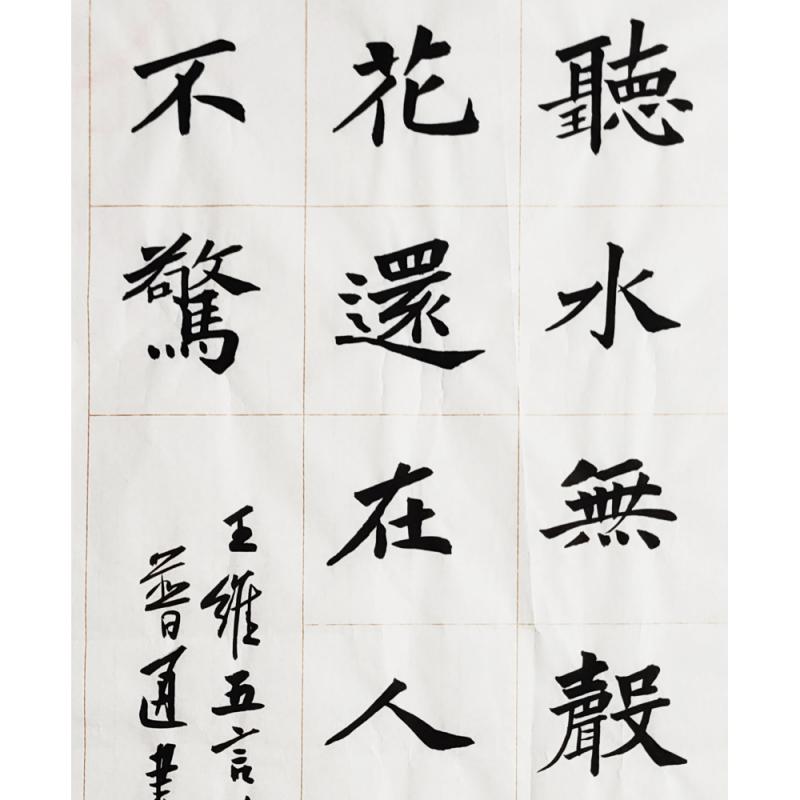 聽水無聲
花還在人
不驚
王維五言
普通書